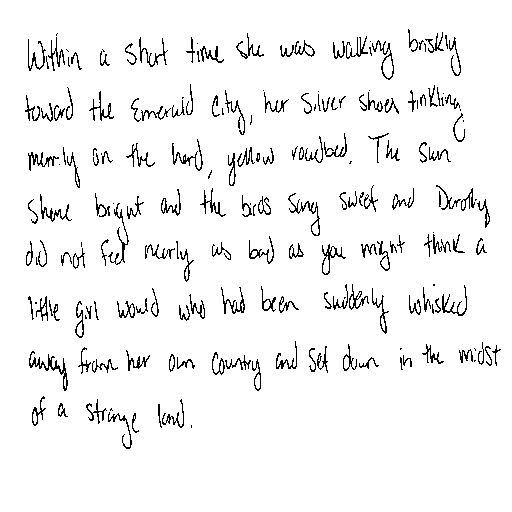 Within a short time she was walking briskly
toward the Emerald City, her Silver Shoes tinkling
merrily on the hard, yellow roadbed. The sun
shone bright and the birds sang sweet and Dorothy
did not feel nearly as bad as you might think a
little girl would who had been suddenly whisked
away from her own country and set down in the midst
of a strange land.